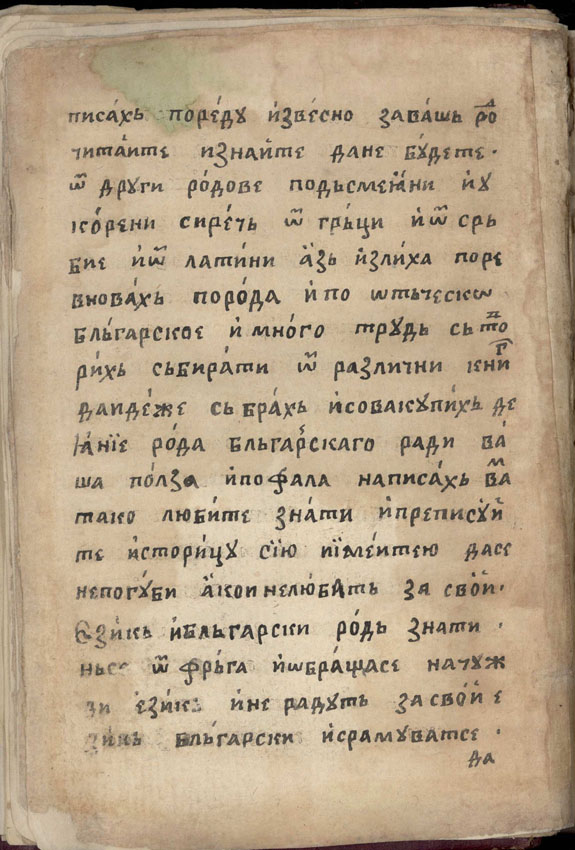 писа́хь поре́ду и҆зве́сно зава́шь ро́д
чита́ите изна́ите дане бу́дете·
ѿ други ро́дове подьсмея́ни и҆у
ко́рени сире́чь ѿ грьци и҆ѿ срь
бие и҆ѿ лати́ни а҆́зь и҆зли́ха поре
вновахь поро́да и҆по ѡтьческѡ
бльгарское и҆мно́го трудь сьтпо
ри́хь сьбира́ти ѿ различни книг
даиде́же сьбра́хь и҆совакупи́хь де
ꙗ́нїе ро́да бльга́рскаго ради ва́
ша по́лза и҆пофала написа́хь вам
тако люби́те зна́ти и҆преписуи
те и҆сторицу сїю и҆и҆ме́итею дасе
непогу́би а҆кои нелю́бѧть за сво́и·
Е҆зи́кь и҆бльга́рски ро́дь знати·
ньсе ѿ фрьга и҆ѡбраща́се на чуж
зи е҆зи́кь и҆не радуть за сво́и е
зи́кь бльгарски и҆срамува́тсе·
да